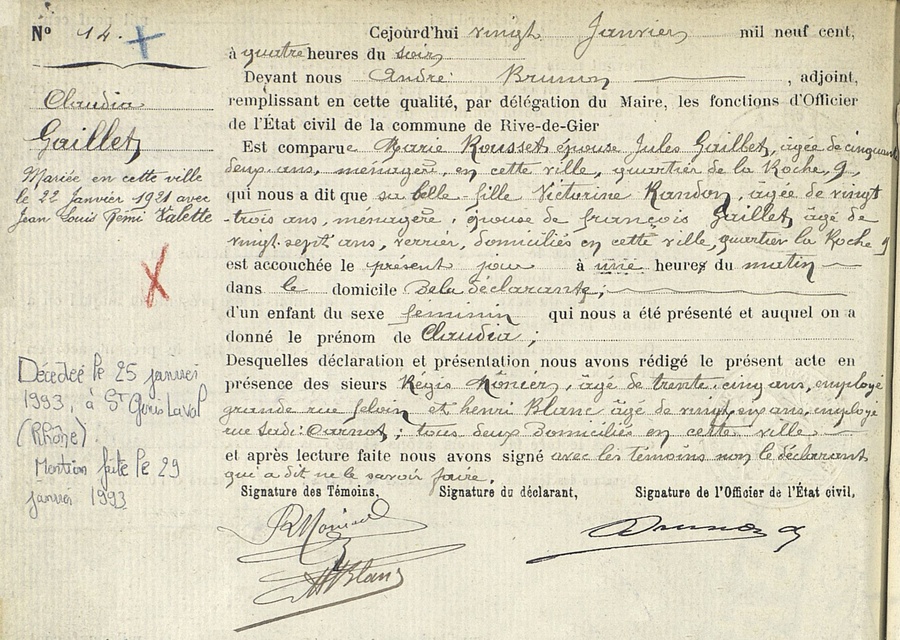 N° 14.
Claudia
Gaillet
Mariée en cette ville
le 22 Janvier 1921 avec
Jean Louis Rémi Valette
Décédée le 25 janvier
1993, à St Genis Laval
(Rhône).
Mention faite le 29
janvier 1993
Cejourd'hui vingt Janvier mil neuf cent,
à quatre heures du soir
Devant nous André Brunon, adjoint,
remplissant en cette qualité, par délégation du Maire, les fonctions d'Officier
de l'État civil de la commune de Rive-de-Gier
Est comparue Marie Rousset épouse Jules Gaillet, âgée de cinquante
deux ans, ménagère, en cette ville, quartier de la Roche, 9,
qui nous a dit que sa belle-fille Victorine Randon, âgée de vingt
-trois ans, ménagère, épouse de françois Gaillet âgé de
vingt-sept ans, verrier, domiciliés en cette ville, quartier la Roche 9
est accouchée le présent jour à une heures du matin
dans le domicile De la déclarante;
d'un enfant du sexe féminin qui nous a été présenté et auquel on a
donné le prénom de Claudia;
Desquelles déclaration et présentation nous avons rédigé le présent acte en
présence des sieurs Régis âgé de trente cinq ans, employé
grande rue et henri Blanc âgé de ans, employé
rue Sadi-Carnot; tous deux Domiciliés en cette ville
et après lecture faite nous avons signé avec les témoins non le déclarant
qui a dit ne le savoir faire.
Signature des Témoins. Signature du déclarant, Signature de l'Officier de l'État civil,
HBlanc
Brunon